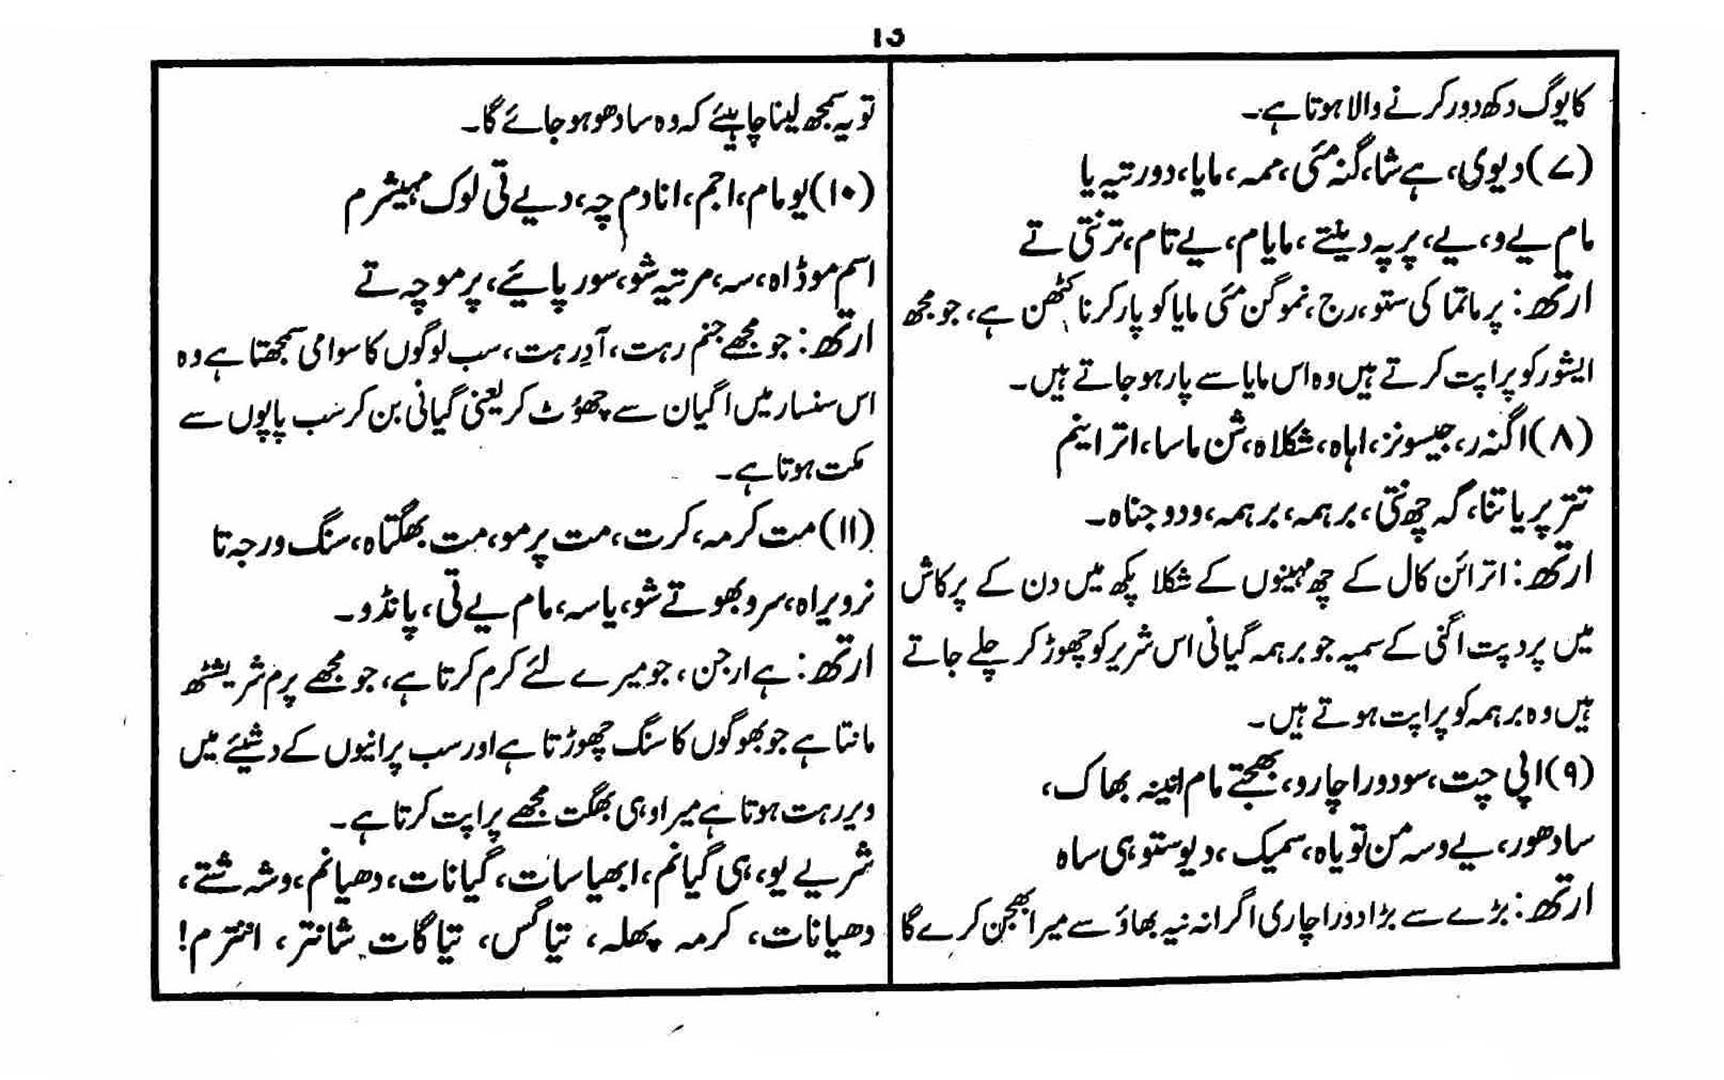 13
کایوگ دکھ دور کرنے والا ہوتا ہے۔
(۷) دیوی، ہے شا، گنہ مئی، ممہ، مایا، دورتیہ یا
مام یے و، یے، پرپہ دینتے، مایام، یے تام، ترنتی تے
ارتھ: پرماتما کی ستو، رج، تموگن مئی مایا کو پار کرنا کٹھن ہے، جو مجھ
ایشور کو پراپت کرتے ہیں وہ اس مایا سے پار ہو جاتے ہیں۔
(۸) اگنہ ر، جیسونز، اہاہ، شکلاہ، شن ماسا، اتراینم
تتر پریاتنا، گہ چھ نتی، برہمہ، برہمہ، ودو جناہ۔
ارتھ: اترائن کال کے چھ مہینوں کے شکلا پکھ میں دن کے پرکاش
میں پردپت اگنی کے سمیہ جو برہمہ گیانی اس شریر کو چھوڑ کر چلے جاتے
ہیں وہ برہمہ کو پراپت ہوتے ہیں۔
(۹) اپی چت، سودوراچارو، بھجتے مام اننیہ بھاک،
سادھور، یے وسہ من تویاہ، سمیک، دیوستو ہی ساہ
ارتھ: بڑے سے بڑا دوراچاری اگر انہ نیہ بھاؤ سے میرا بھجن کرے گا
تو یہ سمجھ لینا چاہیئے کہ وہ سادھو ہو جائے گا۔
(۱۰) یو مام، اجم، انادم چہ، دیے تی لوک مہیشرم
اسم موڈاہ، سہ، مرتیہ شو، سور پائیے، پرموچہ تے
ارتھ: جو مجھے جنم رہت، آدِ رہت، سب لوگوں کا سوامی سمجھتا ہے وہ
اس سنسار میں اگیان سے چھوٹ کر یعنی گیانی بن کر سب پاپوں سے
مکت ہوتا ہے۔
(۱۱) مت کرمہ، کرت، مت پرمو، مت بھگتاہ، سنگ ورجہ تا
نرویراہ، سرو بھوتے شو، یا سہ، مام یے تی، پانڈو۔
ارتھ: ہے ارجن، جو میرے لئے کرم کرتا ہے، جو مجھے پرم شریشٹھ
مانتا ہے جو بھوگوں کا سنگ چھوڑتا ہے اور سب پرانیوں کے وشیئے میں
ویر رہت ہوتا ہے میرا وہی بھگت مجھے پراپت کرتا ہے۔
شریے یو، ہی گیانم، ابھیاسات، گیانات، دھیانم، وشہ شتے،
دھیانات، کرمہ پھلہ، تیاگس، تیاگات شانتر، انترم!